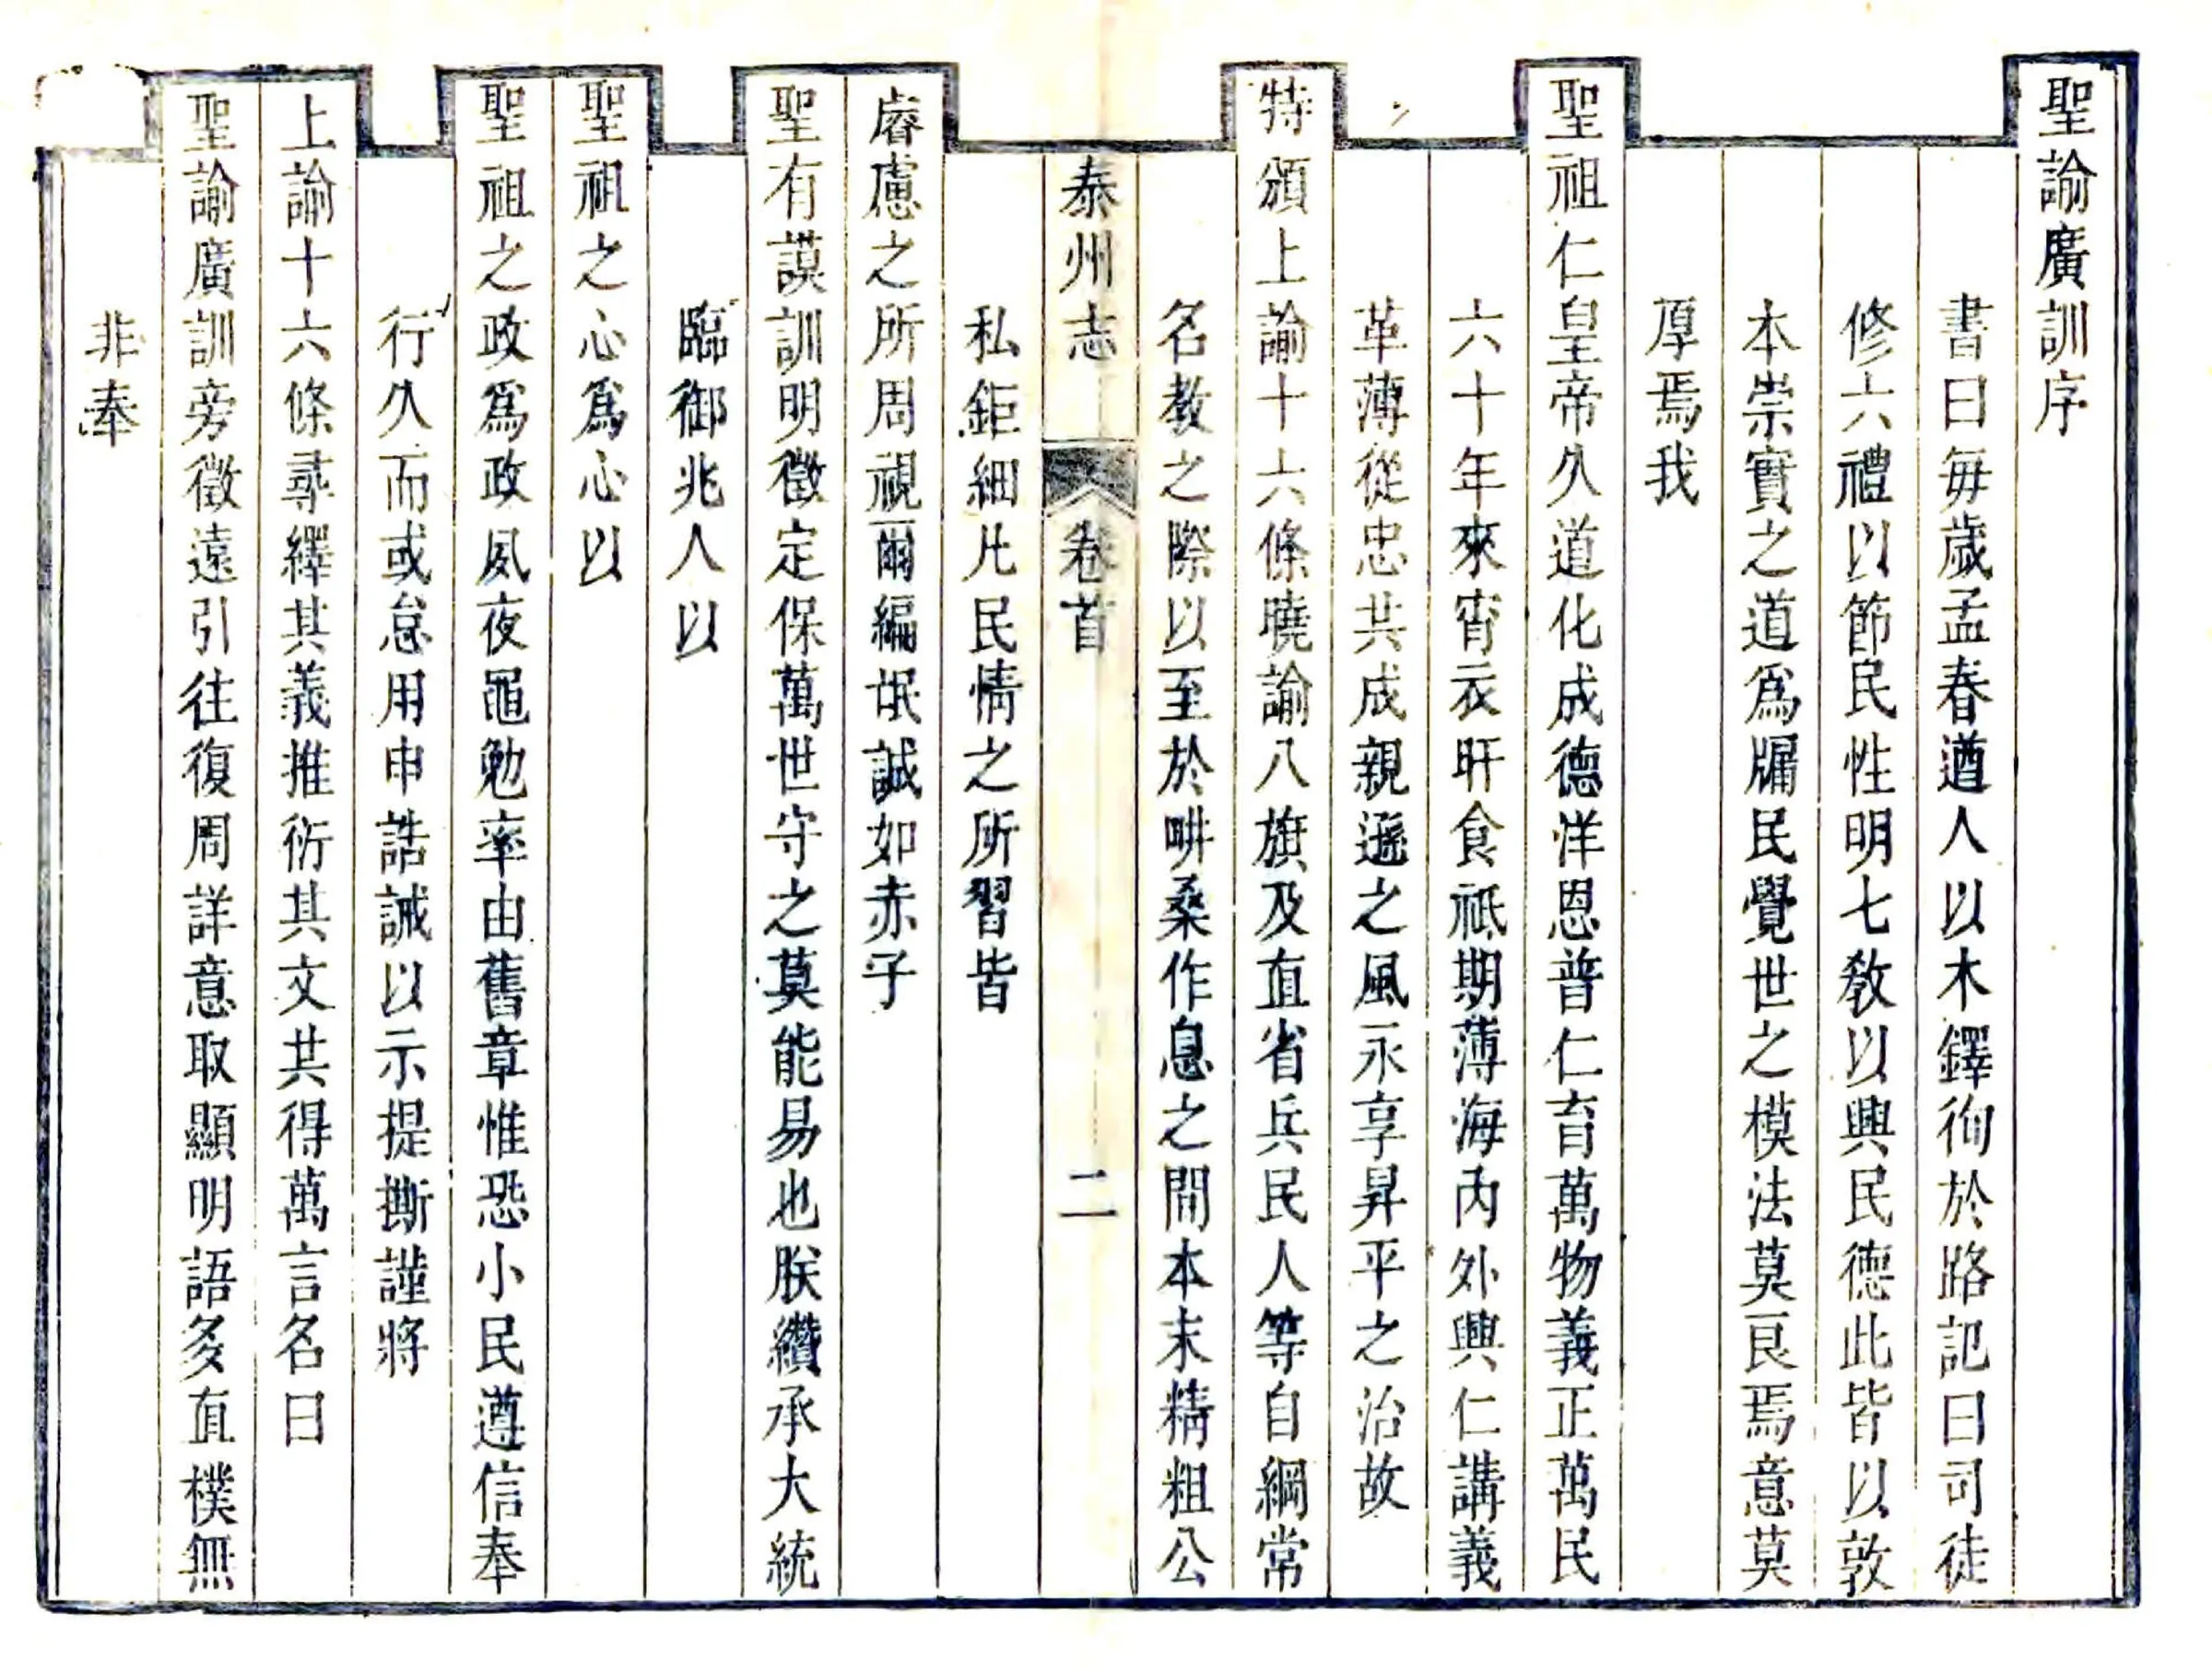 聖諭廣訓序
書曰每歲孟春遒人以木鐸徇於路記曰司徒
修六禮以節民性明七敎以興民德此皆以敦
本崇實之道爲牖民覺世之模法莫良焉意莫
厚焉我
聖祖仁皇帝久道化成德洋恩普仁育萬物義正萬民
六十年來宵衣旰食祇期薄海內外興仁講義
革薄從忠共成親遜之風永享昇平之治故
特頒上諭十六條曉諭八旗及直省兵民人等自綱常
名教之際以至於畊桑作息之間本末精粗公
泰州志 卷首 二
私鉅細凡民情之所習皆
睿慮之所周視爾編氓誠如赤子
聖有謨訓明徵定保萬世守之莫能易也朕纘承大統
臨御兆人以
聖祖之心爲心以
聖祖之政爲政夙夜黽勉率由舊章惟恐小民遵信奉
行久而或怠用申誥誡以示提撕謹將
上諭十六條尋繹其義推衍其文共得萬言名曰
聖諭廣訓旁徵遠引往復周詳意取顯明語多直樸無
非奉